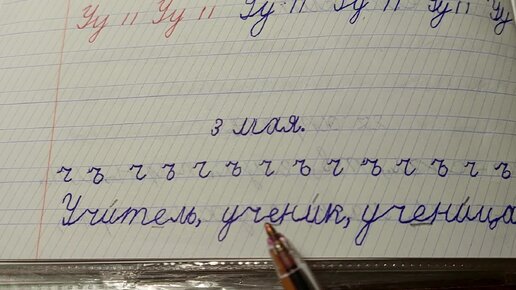 Уу ıı Уу ıı Уу ıı Уу ıı Уу ıı Уу
3 мая.
ч ъ ч ъ ч ъ ч ъ ч ъ ч ъ ч ъ
Учитель, ученик, ученица